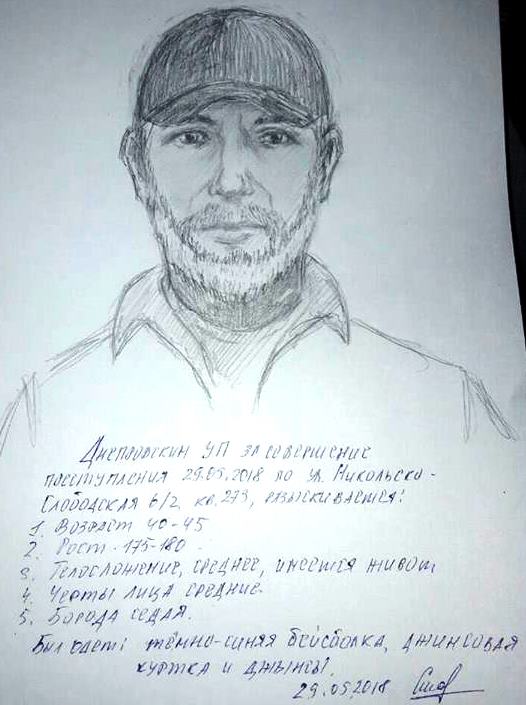 Днепровским УП за совершение
преступления 29.05.2018 по ул. Никольско-
Слободская 6/2 кв. 273, разыскивается:
1. Возраст 40-45
2. Рост - 175-180.
3. Телосложение, среднее, имеется живот
4. Черты лица средние.
5. Борода седая.
Был одет: тёмно-синяя бейсболка, джинсовая
куртка и джынсы.
29.05.2018